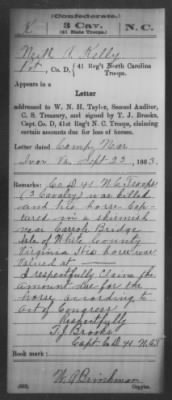 (Confederate.)
K 3 Cav. N.C.
(41 State Troops.)
Neill A Kelly
Pvt., Co. D, 41 Reg't North Carolina Troops.
Appears in a
Letter
addressed to W. N. H. Taylor, Second Auditor,
C. S. Treasury, and signed by T. J. Brooks,
Capt. Co. D, 41st Reg't N. C. Troops, claiming
certain amounts due for loss of horses.
Letter dated Camp Near
Ivor Va Sept 22, 1863.
Remarks: Co D 41 N.C. Troops
(3 Cavalry) was killed
and his horse Cap-
tured in a skirmish
near Carrols Bridge
Isle of White County
Virginia His horse was
Valued at
I respectfully Claim the
amount due for the
horse according to
Act of Congress
Respectfully
T.J. Brooks
Capt Co D 41 N.C.T
Book mark:
W. A. Brinkman
Copyist.